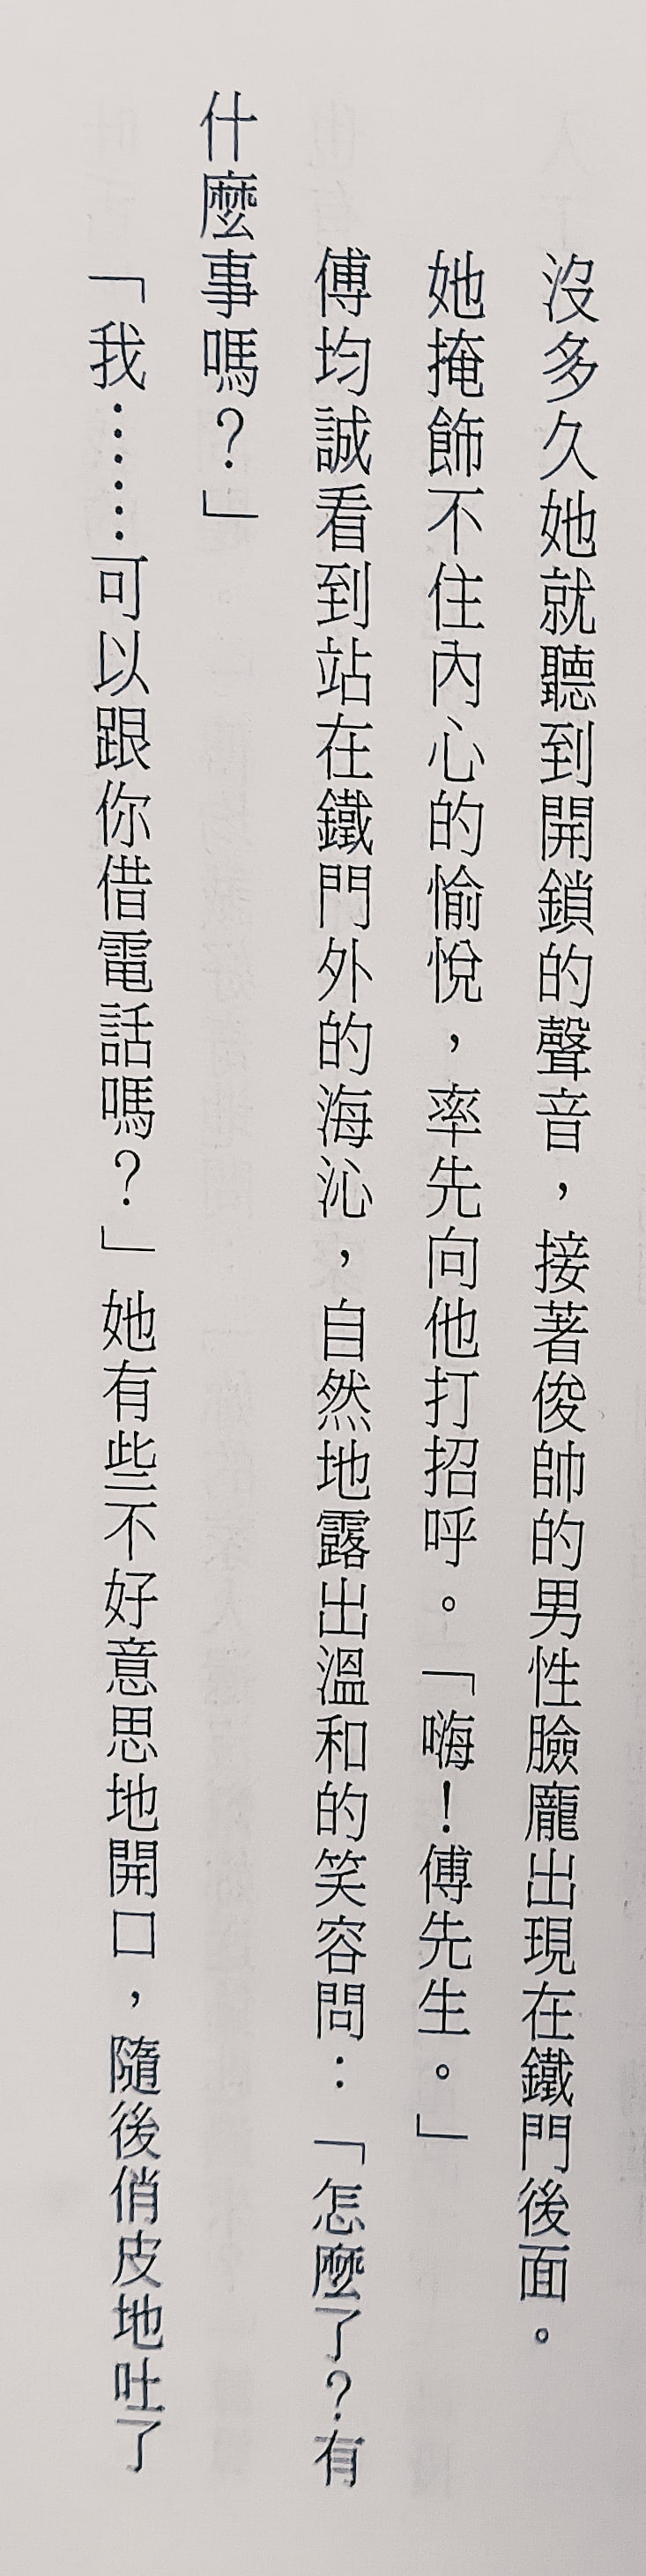 沒多久她就聽到開鎖的聲音，接著俊帥的男性臉龐出現在鐵門後面。
她掩飾不住內心的愉悅，率先向他打招呼。「嗨！傅先生。」
傅均誠看到站在鐵門外的海沁，自然地露出溫和的笑容問：「怎麼了？有
什麼事嗎？」
「我……可以跟你借電話嗎？」她有些不好意思地開口，隨後俏皮地吐了